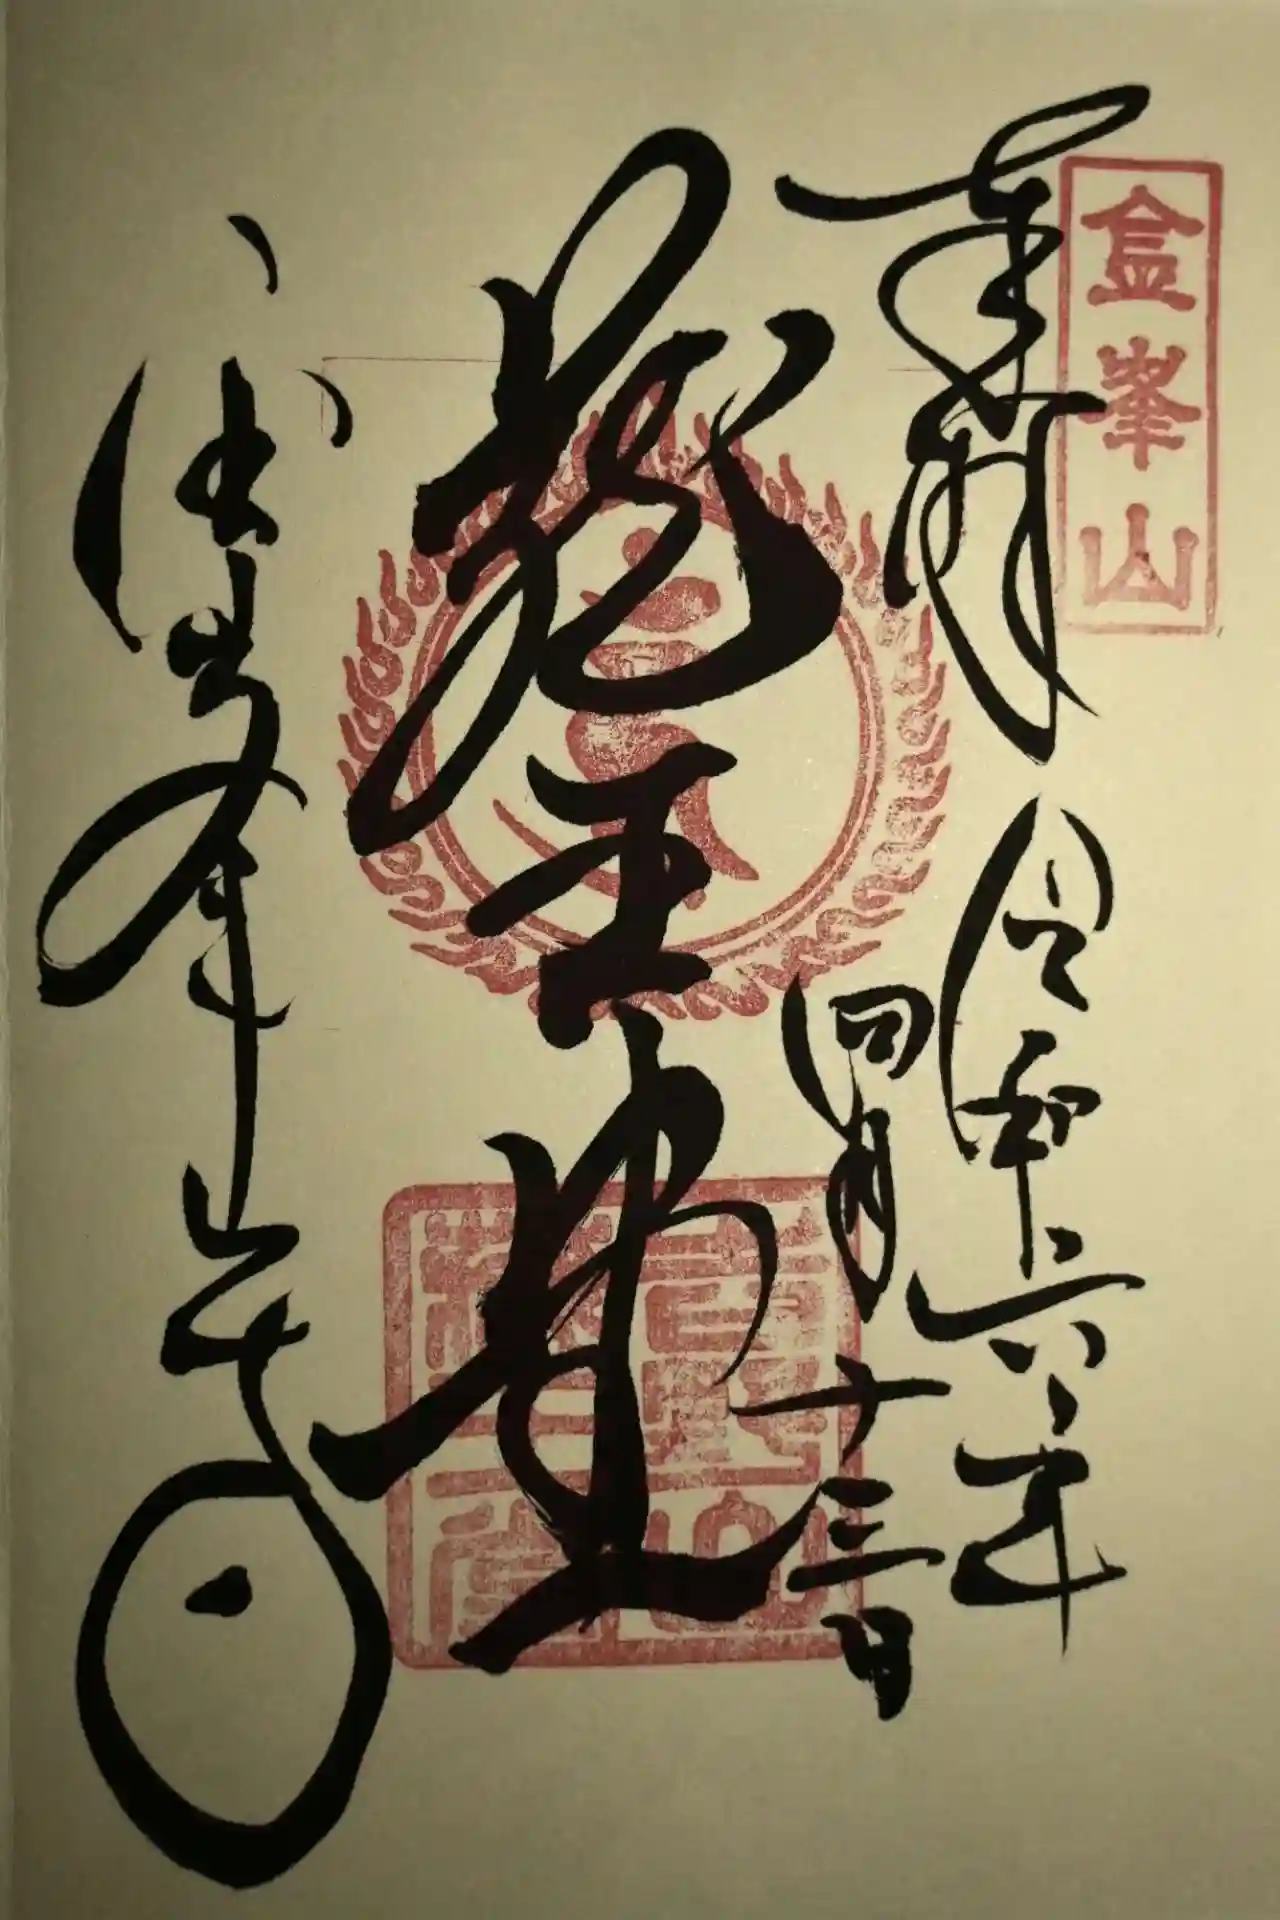 金峯山
奉拝
令和六年
四月十三日
蔵王堂
金峯山寺